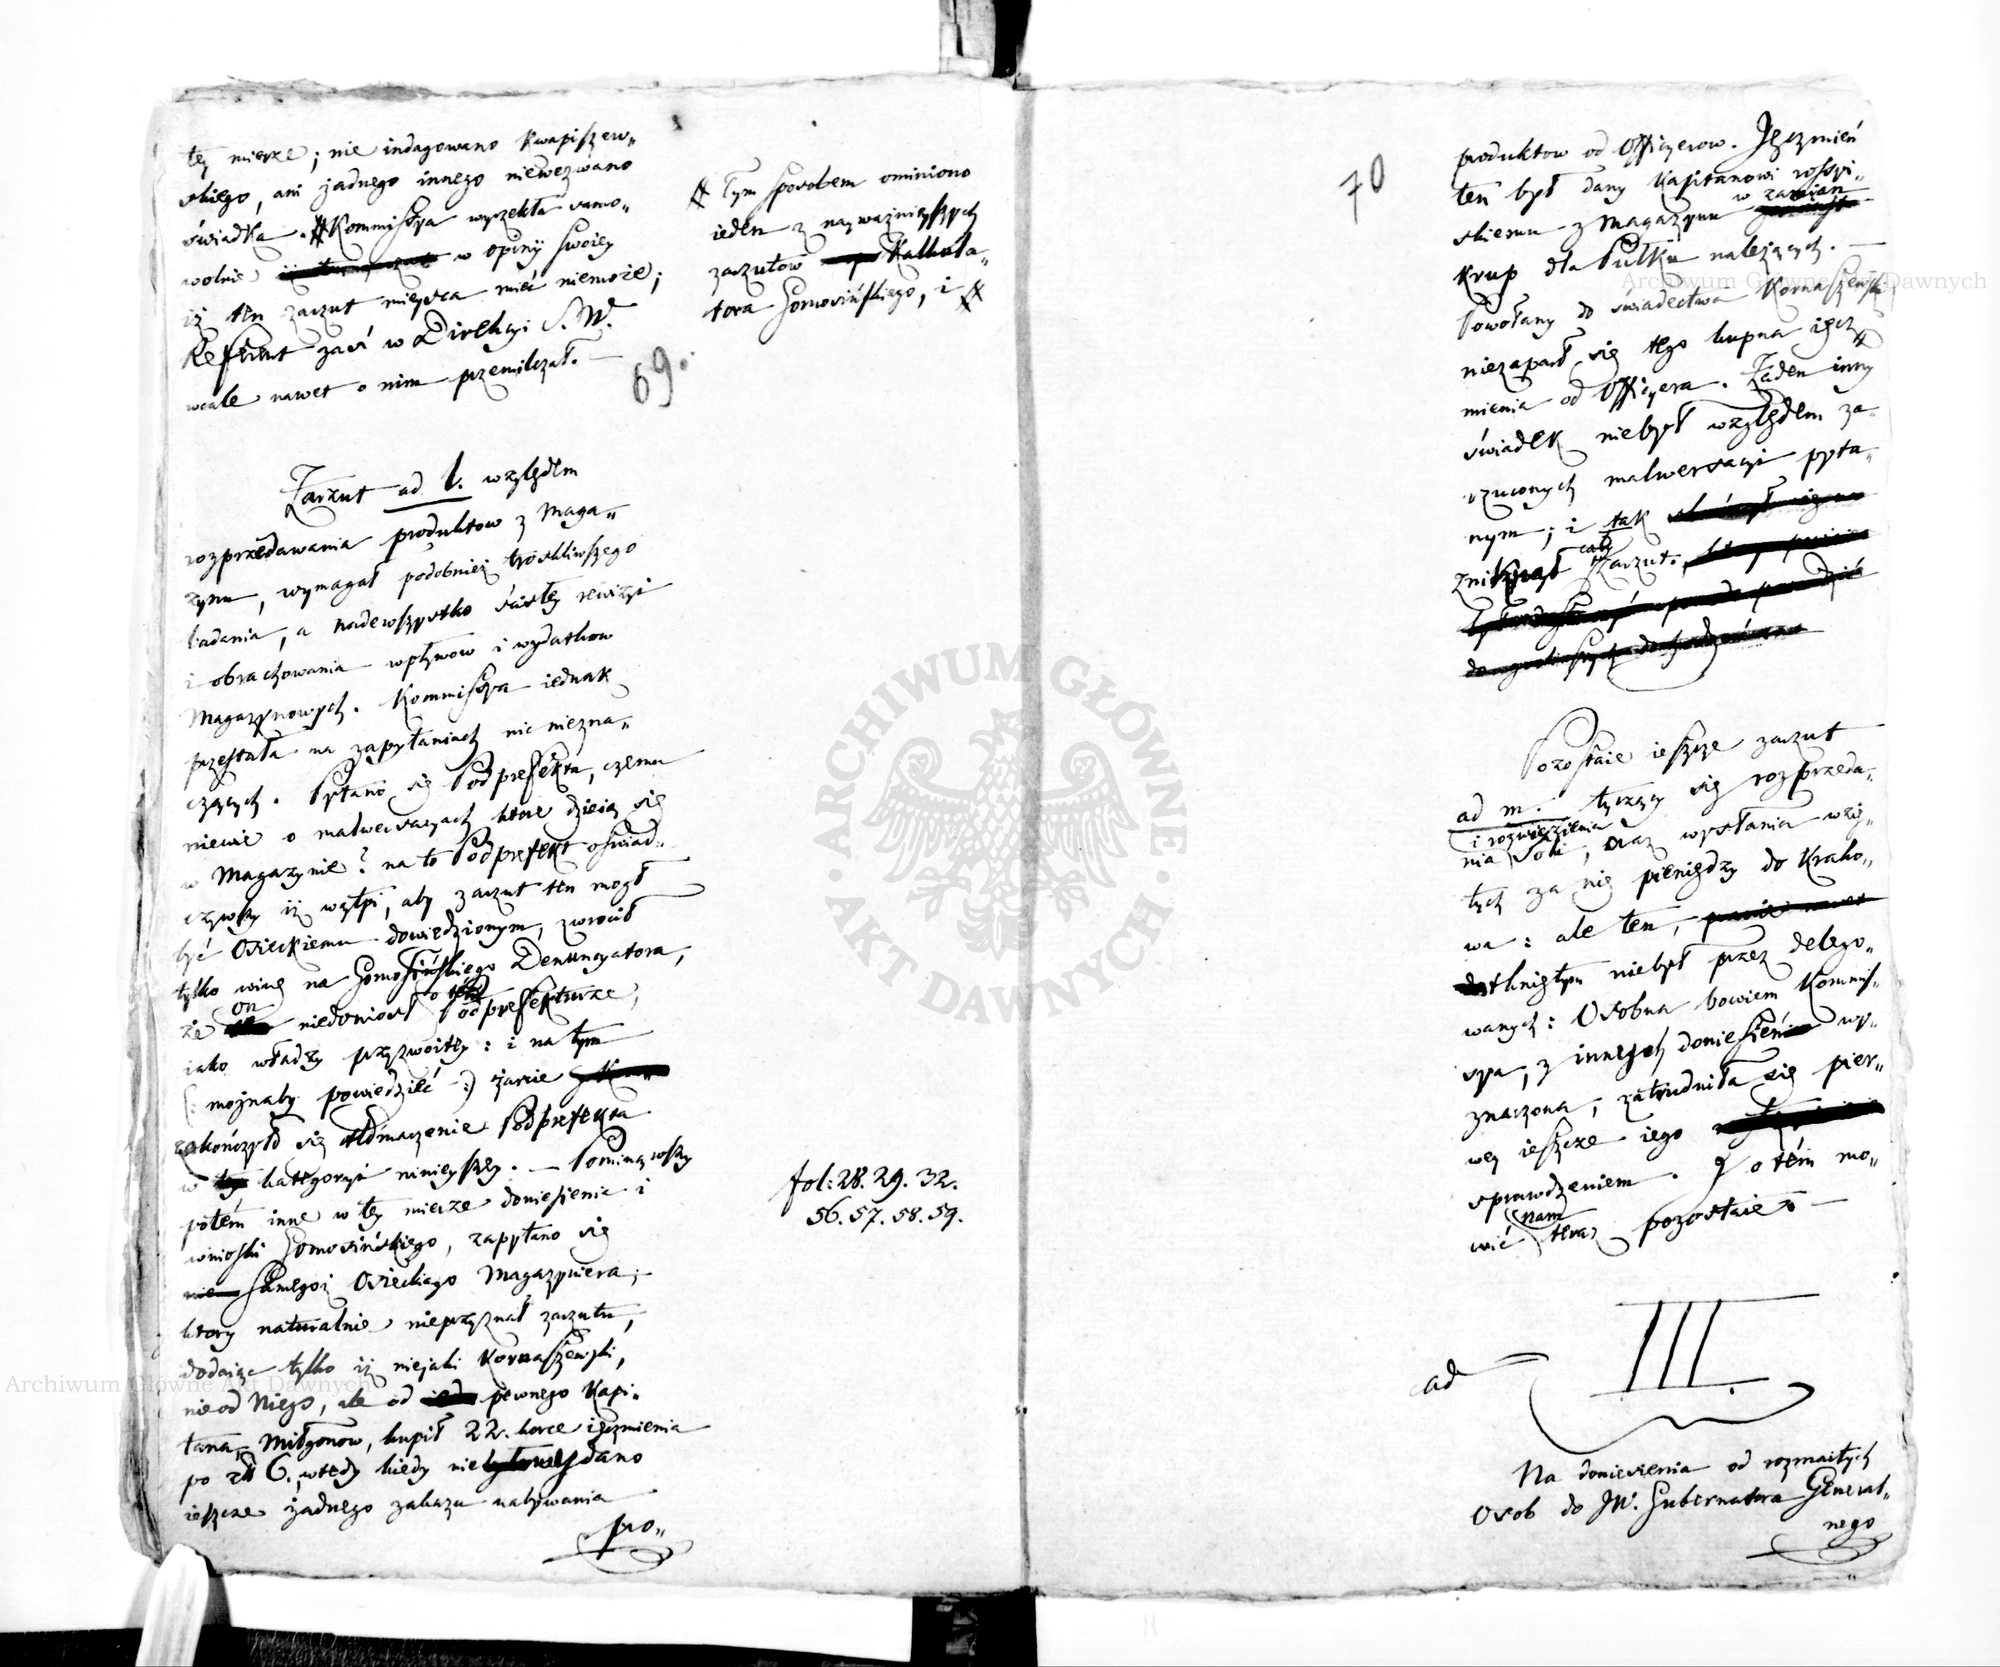 tey mierze; nie indagowano Kwapiszew„
skiego, ani żadnego innego niewezwano
świadka. # Kommissya wyrzekła samo„
wolnie w opinÿ swoiey
iż ten zarzut mieysca mieć niemoże;
Referent zaś w Direkcyi S. W.
wcale nawet o nim przemilczał. —
# Tym sposobem ominiono
ieden z nayważnieyszych
zarzutow Kalkula„
tora Gomosińskiego, i #
69.
Zarzut ad l. względem
rozprzedawania produktow z Maga„
zynu, wymagał podobnież troskliwszego
badania, a nadewszystko ścisłey rewizyi
i obrachowania wpływow i wydatkow
Magazynowych. Kommissya iednak
przestała na zapytaniach nic niezna„
czących. Pytano się Podprefekta, czemu
niewie o malwersacyach ktore dzieią się
w Magazynie? na to Podprefekt oświad„
czywszy iż wątpi, aby zarzut ten mogł
być Osieckiemu dowiedzionym, zwrocił
tylko winę na Gomosińskiego Denuncyatora,
że on niedoniosł o tem Podprefekturze,
iako władzy przyzwoitey: i na tym
(: możnaby powiedzieć :) żarcie
zakończyło się tłomaczenie Podprefekta
w kategoryi ninieyszey. — Pominąwszy
potém inne w tey mierze doniesienia i
wnioski Gomosińskiego, zapytano się
samegoż Osieckiego Magazyniera;
ktory naturalnie nieprzyznał zarzutu,
dodaiąc tylko iż niejaki Kornaszewski,
nie od Niego, ale od pewnego Kapi„
tana, Miłgonow, kupił 22. korce ięczmienia
po zł 6., wtedy kiedy nie dano
ieszcze żadnego zakazu nabywania
pro„
fol: 28. 29. 32.
56. 57. 58. 59.
70
produktow od Officyerow. Jęczmień
ten był dany Kapitanowi rossyi„
skiemu z Magazynu w zamian
krup dla Pułku należących. —
Powołany do świadectwa Kornaszewski
niezaparł się tego kupna ięcz„
mienia od Officyera. Żaden inny
świadek niebył względem za„
rzuconych malwersacyi pyta„
nym; i tak
zniknął cały Zarzut.
Pozostaie ieszcze zarzut
ad m. tyczący się rozprzeda„
nia i rozwiezienia Soli, oraz wysłania wzię„
tych za nią pieniędzy do Krako„
wa: ale ten,
dotkniętym niebył przez delego„
wanych: Osobna bowiem Kommis„
sya, z innych doniesień wy„
znaczona, zatrudniła się pier„
wey ieszcze iego
sprawdzeniem. I o tém mo„
wić nam teraz pozostaie. —
ad III.
Na doniesienia od rozmaitych
Osob do JW. Gubernatora Generał„
nego
Archiwum Główne Akt Dawnych
Archiwum Główne Akt Dawnych
ARCHIWUM GŁÓWNE · AKT DAWNYCH ·